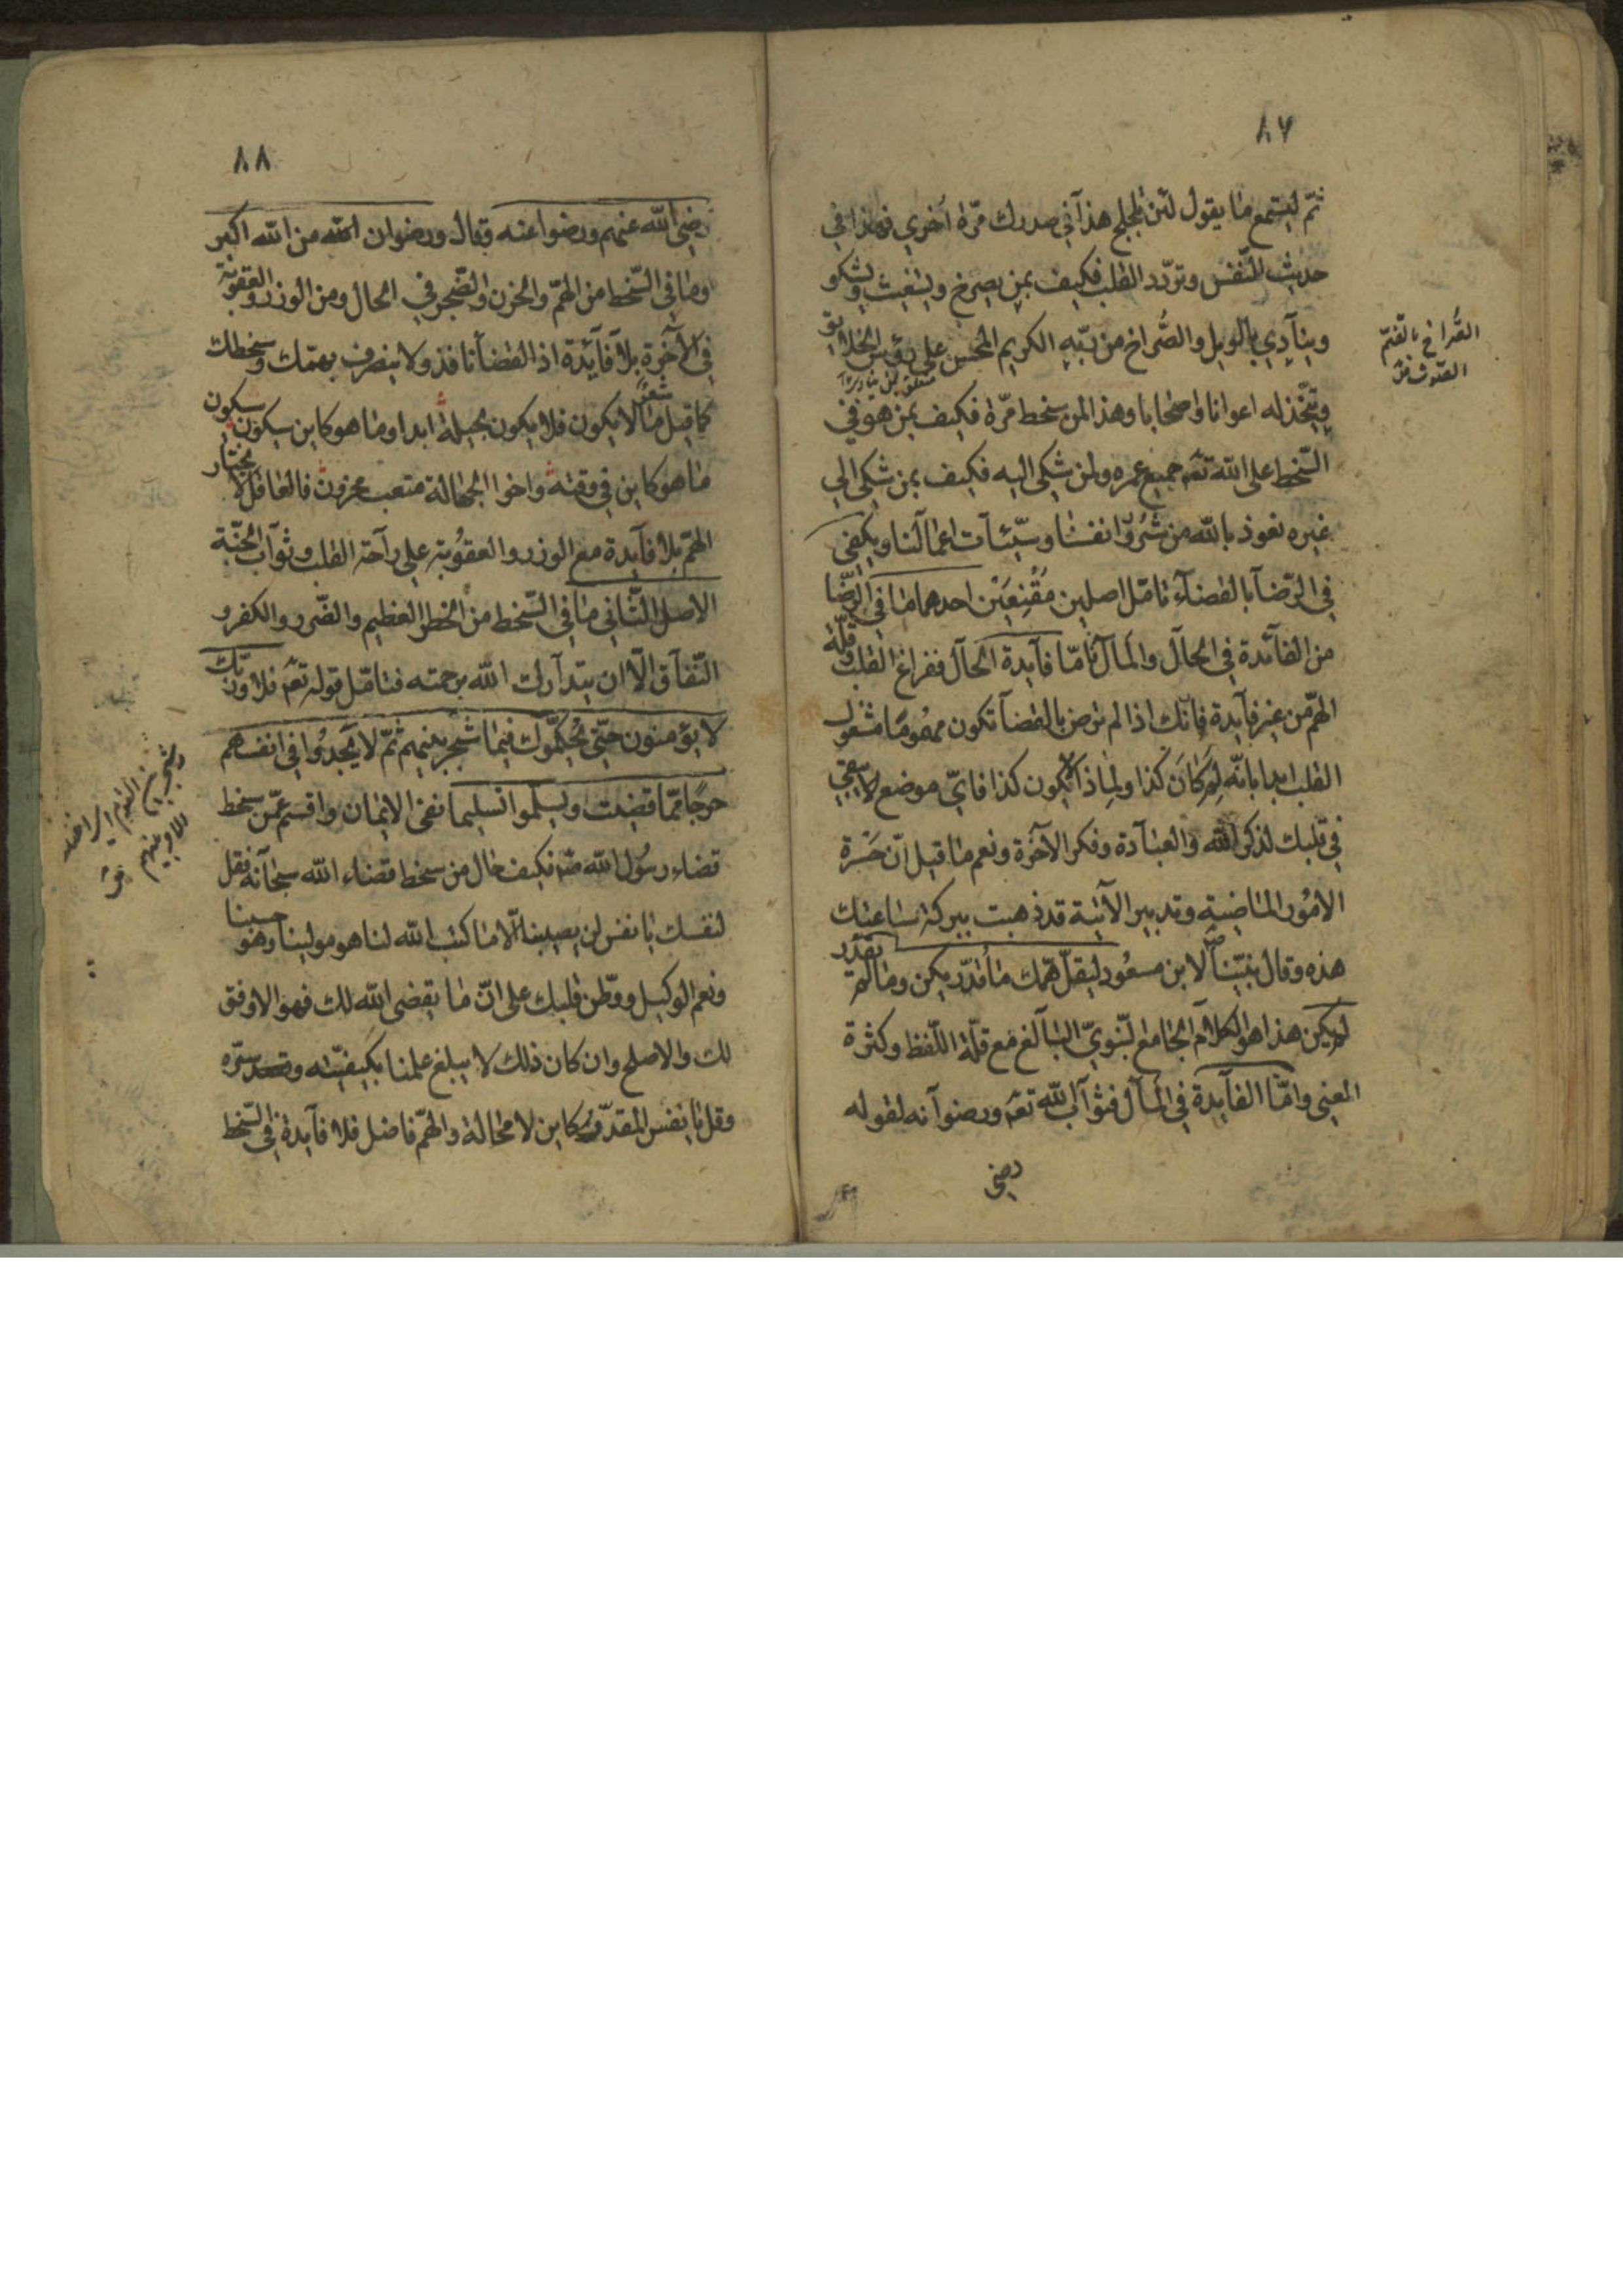 ٨٧
ثمّ ليستمع ما يقول لئن تلجلج هذا في صدرك مرّة أخري فهذا في
حديث النّفس وتردّد القلب فكيف بمن يصرخ ويستغيث ويشكو
وينادي بالويل والصُّراخ من ربّه الكريم المحسن علي رؤس الخلايق
ويتّخذ له اعوانا واصحابا وهذا لمن سخط مرّة فكيف بمن هو في
السّخط علي الله تعم جميع عمره ولمن شكي اليه فكيف بمن شكي الي
غيره نعوذ بالله من شرور انفسنا وسيّئات اعمالنا ويكفي
في الرّضا بالقضآء تامّل اصلين مُقْنِعَيْن احدهما ما في الرّضا
من الفائدة في الحال والمآل امّا فايدة الحال ففراغ القلب وقلّة
الهمّ من غير فايدة فانّك اذا لم ترض بالقضا تكون مهمومًا مشغول
القلب ابدا بانّه لِمَ كَانَ كذا ولِماذا لا يكون كذا فايّ موضع يبقي
في قلبك لذكر الله والعبادة وفكر الآخرة ونعم ما قيل انّ حَسْرة
الامُور الماضية وتدبير الآتية قد ذهبت ببركة ساعتك
هذه وقال نبيّنا صم لابن مسعُود ليقلّ همّك ما قُدّر يكن وما لم يقدّر
لم يكن هذا هو الكلام الجامع النّبويّ البالغ مع قلّة اللّفظ وكثرة
المعني وامّا الفايدة في المآل فثواب الله تعم ورضوانه لقوله
رضي
الصُّراخ بالضّمّ
الصّوت
٨٨
رضي الله عنهم ورضوا عنه وقال ورضوان الله من الله اكبر
وما في السّخط من الهمّ والحزن والضّجر في الحال ومن الوزر والعقوبة
في الآخرة بلا فائدة اذ القضا نافذ ولا ينصرف بهمّك وسخطك
كما قيل شعر ما لا يكون فلا يكون بحيلة ابدا وما هو كاين سيكون سيكون
ما هو كاين في وقته واخوا الجهالة متعب محزون فالعاقل لا يختار
الهمّ بلا فآيدة مع الوزر والعقوُبة علي راحة القلب وثواب الجنّة
الاصل الثّاني ما في السّخط من الخطر العظيم والضّرر والكفر و
النّفاق الّا ان يتدارك الله برحمته فتامّل قوله تعم فلا وربّك
لا يؤمنون حتّي يُحَكِّمُوك فيما شجر بينهم ثمّ لا يَجِدوُا في انفسهم
حرجًا ممّا قضيت ويسلّموا تسليما نفي الايمان واقسم عمّن سخط
قضاء رسُول الله صم فكيف حال من سخط قضاء الله سبحانه فقل
لنفسك يا نفس لن يصيبنا الّا ما كتب الله لنا هو مولينا وهو حسبنا
ونعم الوكيل ووطّن قلبك علي انّ ما يقضي الله لك فهو الاوفق
لك والاصلح وان كان ذلك لا يبلغ علمنا بكيفيّته وسرّه
وقل يا نفس المقدّر كاين لا محالة والهمّ فاضل فلا فآيدة في السّخط